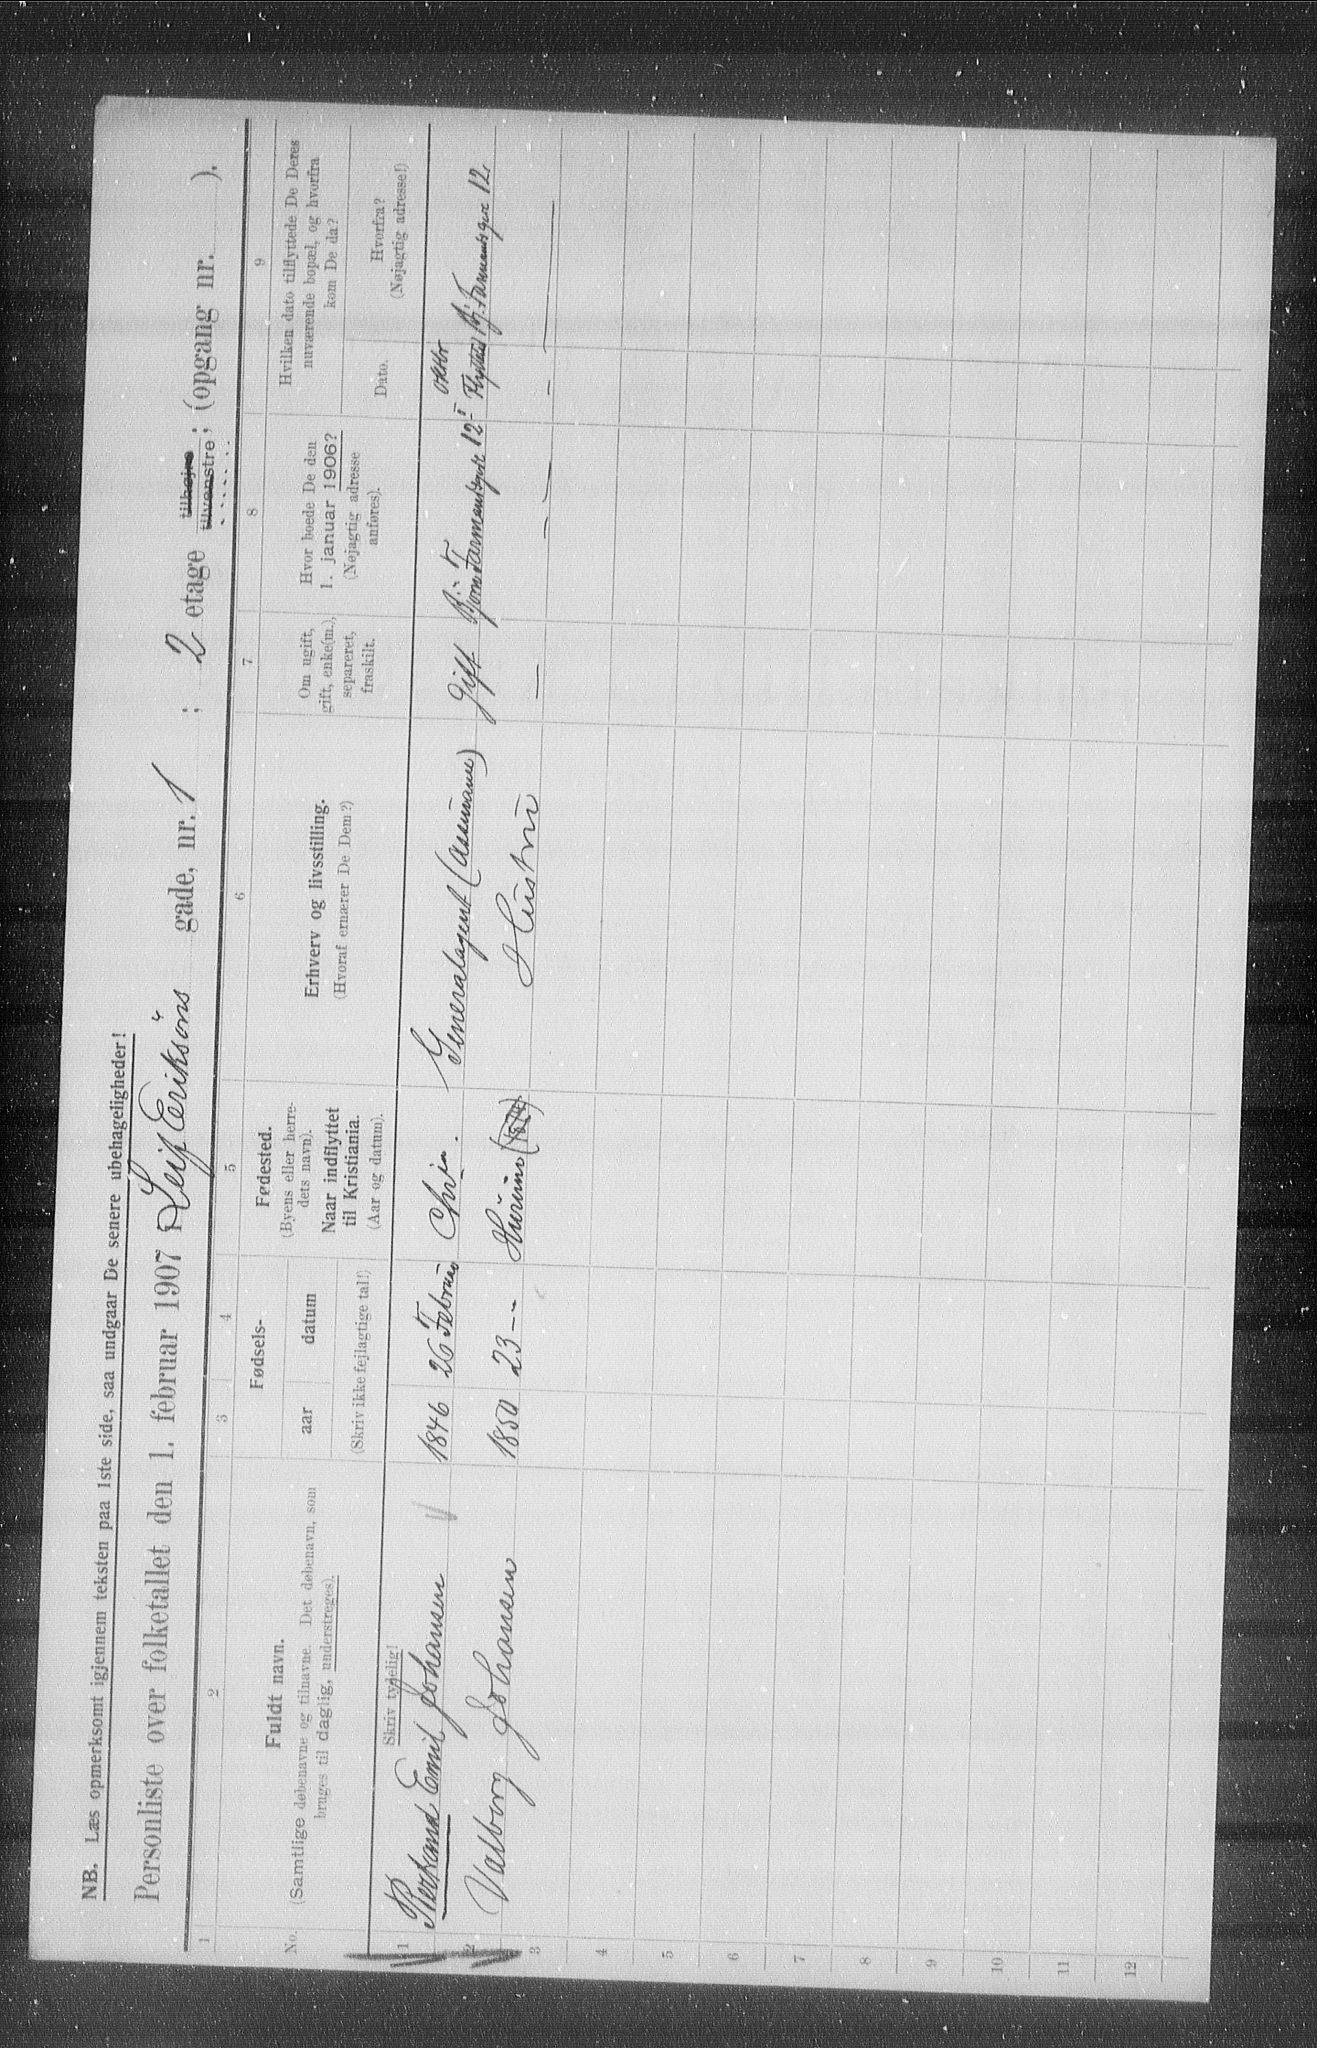 NB. Læs opmerksomt igjennem teksten paa 1ste side, saa undgaar De senere ubehageligheder!
Personliste over folketallet den 1. februar 1907 Leif Eriksöns gade, nr. 1 ; 2 etage tilhøjre tilvenstre; (opgang nr. ).
1 2 3 4 5 6 7 8 9
No.
Fuldt navn.
(Samtlige døbenavne og tilnavne. Det døbenavn, som
bruges til daglig, understreges).
Skriv tydelig!
Fødsels-
aar datum
(Skriv ikke fejlagtige tal!)
Fødested.
(Byens eller herre-
dets navn).
Naar indflyttet
til Kristiania.
(Aar og datum).
Erhverv og livsstilling.
(Hvoraf ernærer De Dem?)
Om ugift,
gift, enke(m.),
separeret,
fraskilt.
Hvor boede De den
1. januar 1906?
(Nøjagtig adresse
anføres).
Hvilken dato tilflyttede De Deres
nuværende bopæl, og hvorfra
kom De da?
Dato.
Hvorfra?
(Nøjagtig adresse!)
1 Emil Johansen 1846 26 Februar Chria. Generalagent (Assurance) gift Bjørn Farmansgate 12 I oktbr Flyttet Bj. Farmandsgate 12.
2 Valborg Johansen 1850 23 - - Hurum Hustru — - - — - —
3
4
5
6
7
8
9
10
11
12